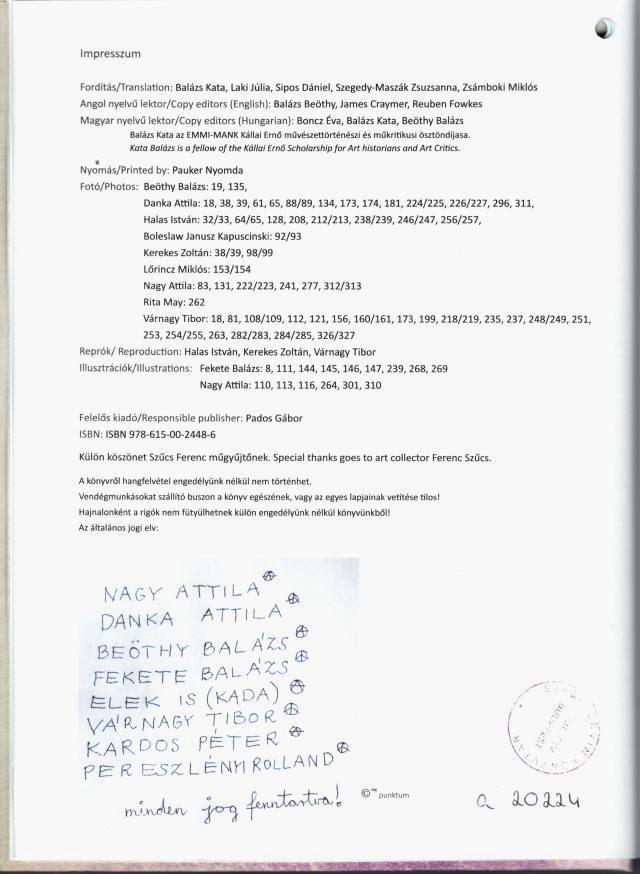 Impresszum
Fordítás/Translation: Balázs Kata, Laki Júlia, Sipos Dániel, Szegedy-Maszák Zsuzsanna, Zsámboki Miklós
Angol nyelvű lektor/Copy editors (English): Balázs Beöthy, James Craymer, Reuben Fowkes
Magyar nyelvű lektor/Copy editors (Hungarian): Boncz Éva, Balázs Kata, Beöthy Balázs
Balázs Kata az EMMI-MANK Kállai Ernő művészettörténészi és műkritikusi ösztöndíjasa.
Kata Balázs is a fellow of the Kállai Ernő Scholarship for Art historians and Art Critics.
Nyomás/Printed by: Pauker Nyomda
Fotó/Photos: Beöthy Balázs: 19, 135,
Danka Attila: 18, 38, 39, 61, 65, 88/89, 134, 173, 174, 181, 224/225, 226/227, 296, 311,
Halas István: 32/33, 64/65, 128, 208, 212/213, 238/239, 246/247, 256/257,
Boleslaw Janusz Kapuscinski: 92/93
Kerekes Zoltán: 38/39, 98/99
Lőrincz Miklós: 153/154
Nagy Attila: 83, 131, 222/223, 241, 277, 312/313
Rita May: 262
Várnagy Tibor: 18, 81, 108/109, 112, 121, 156, 160/161, 173, 199, 218/219, 235, 237, 248/249, 251,
253, 254/255, 263, 282/283, 284/285, 326/327
Reprók/ Reproduction: Halas István, Kerekes Zoltán, Várnagy Tibor
Illusztrációk/Illustrations: Fekete Balázs: 8, 111, 144, 145, 146, 147, 239, 268, 269
Nagy Attila: 110, 113, 116, 264, 301, 310
Felelős kiadó/Responsible publisher: Pados Gábor
ISBN: ISBN 978-615-00-2448-6
Külön köszönet Szűcs Ferenc műgyűjtőnek. Special thanks goes to art collector Ferenc Szűcs.
A könyvről hangfelvétel engedélyünk nélkül nem történhet.
Vendégmunkásokat szállító buszon a könyv egészének, vagy az egyes lapjainak vetítése tilos!
Hajnalonként a rigók nem fütyülhetnek külön engedélyünk nélkül könyvünkből!
Az általános jogi elv:
NAGY ATTILA Ⓐ
DANKA ATTILA Ⓐ
BEÖTHY BALÁZS Ⓐ
FEKETE BALÁZS Ⓐ
ELEK IS (KADA) Ⓐ
VÁRNAGY TIBOR Ⓐ
KARDOS PÉTER Ⓐ
PERESZLÉNYI ROLLAND Ⓐ
minden jog fenntartva!
©™ punktum
a 20224
KÖNYVTÁR